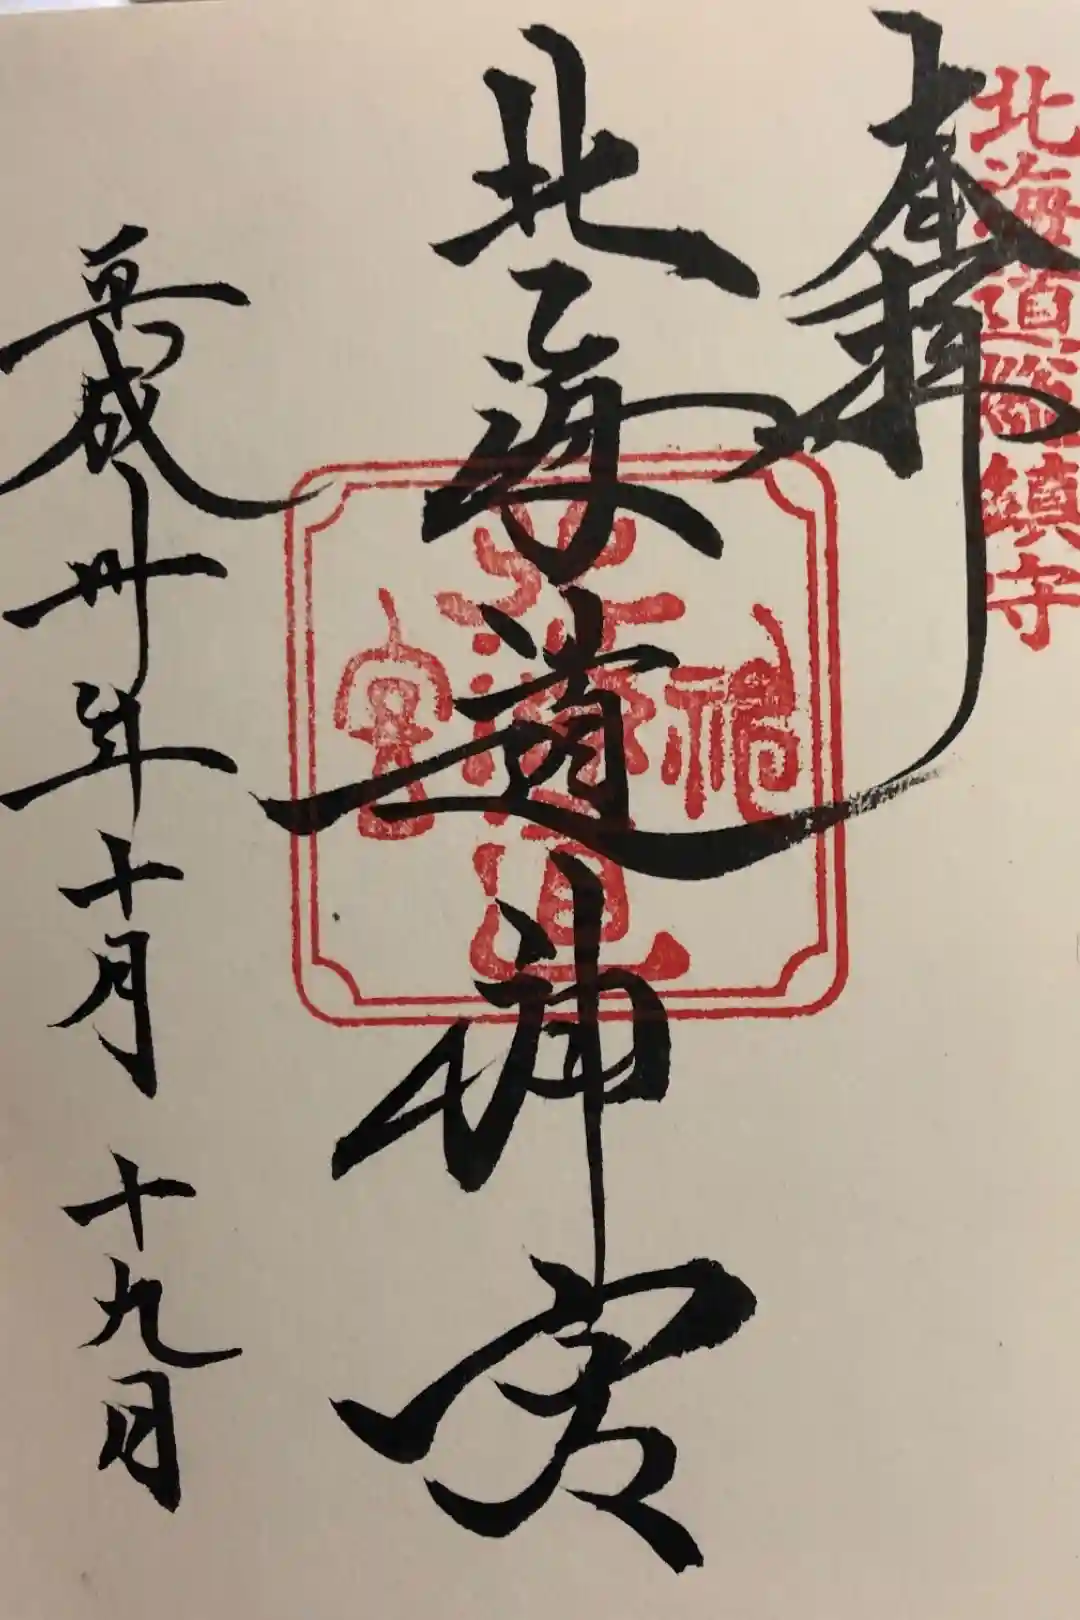 北海道総鎮守
奉拝
北海道神宮
北海道神宮
平成卅年十月十九日